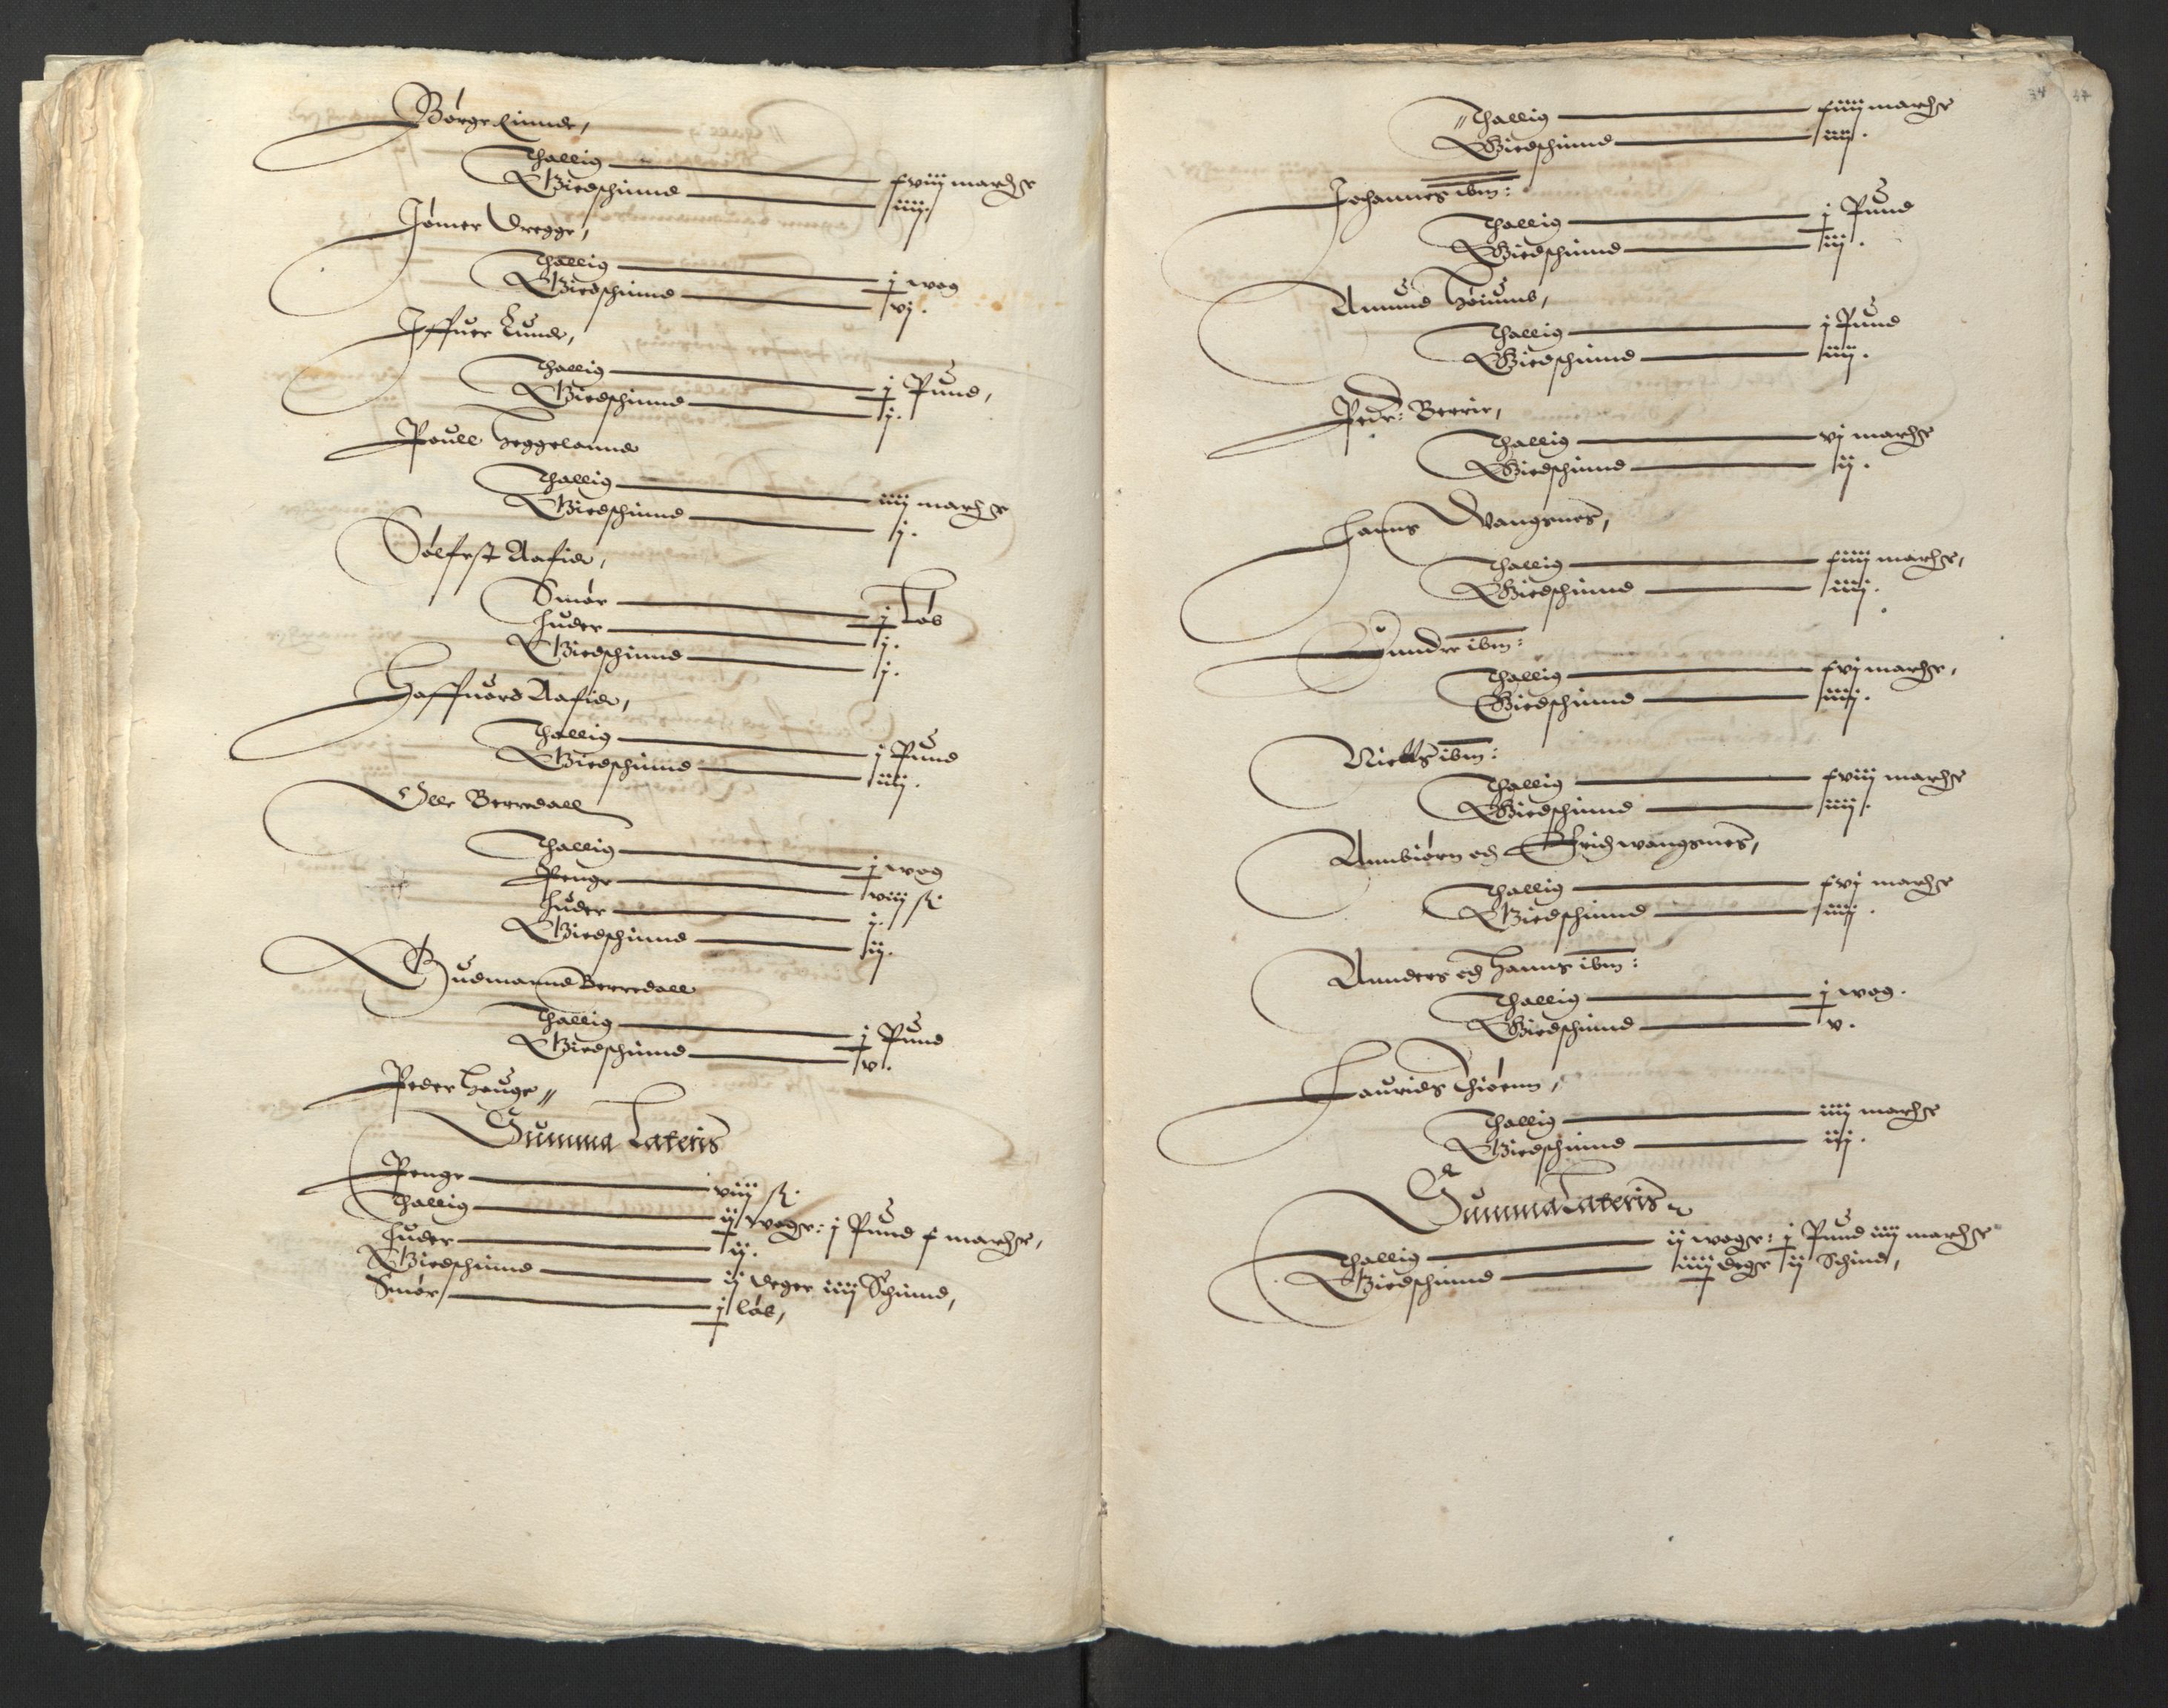 Børge Linnde,
Thallig fviij marcher
Giedschinnd iiij.
Joner Dregge,
Thallig j wog
Giedschinnd vj.
Iffuer Lunde,
Thallig j Pund,
Giedschinnd ij.
Pouell Heggelannd
Thallig iiij marcher
Giedschinnd j.
Sølfest Aafide,
Smør j Løb
Huder j.
Giedschinnd j.
Haffuord Aafide,
Thallig j Pund
Giedschinnd iiij.
Olle Berredall
Thallig j wog
Penge viij ß.
Huder j.
Giedschinnd ij.
Gudmannd Berredall
Thallig j Pund
Giedschinnd v.
Peder Houge //
Summa Lateris
Penge viij ß.
Thallig ij woge: j Pund f marcher,
Huder ij.
Giedschinnd ij deger iiij Schinnd,
Smør j løb,
34 37
// Thallig fiiij marcher
Giedschinnd iiij.
Johannes ibm:
Thallig j Pund
Giedschinnd iij.
Amund Høiumb,
Thallig j Pund
Giedschinnd iiij.
Peder: Berrie,
Thallig vj marcher
Giedschinnd ij.
Hanns Wangsnes,
Thallig fiiij marcher,
Giedschinnd iiij.
Gundre ibm:
Thallig fvj marcher,
Giedschinnd iiij.
Niells ibm:
Thallig fviij marcher
Giedschinnd iiij.
Annbiørn och Erich wangsnes,
Thallig fvj marcher
Giedschinnd iiij.
Annders och Hanns ibm:
Thallig j wog.
Giedschinnd v.
Lauridz Thiørnn,
Thallig iiij marcher
Giedschinnd iij.
Summa Lateris
Thallig ij woge: j Pund iiij marcher
Giedschinnd iiij deger ij Schind,